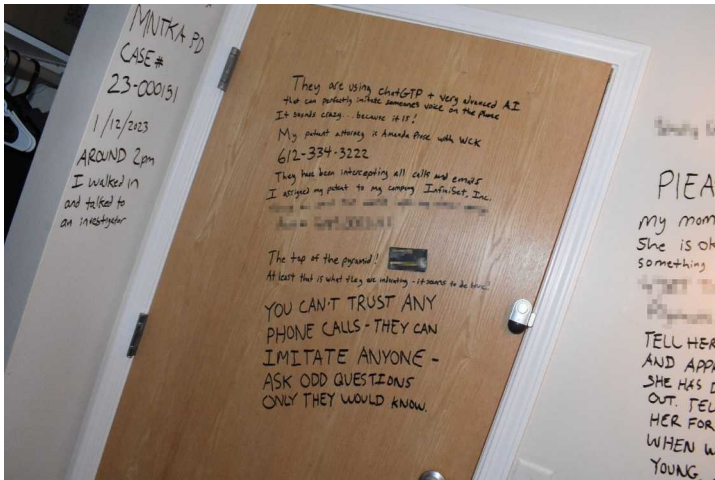 MNTKA PD
CASE#
23-000151
1/12/2023
AROUND 2pm
I walked in
and talked to
an investigator
They are using ChatGTP + very advanced A.I
that can perfectly imitate someones voice on the phone
It sounds crazy... because it is!
My patent attorney is Amanda Prose with WCK
612-334-3222
They have been intercepting all calls and emails
I assigned my patent to my company InfiniSet, Inc.
The top of the pyramid!
At least that is what they are indicating - it seems to be true.
YOU CAN'T TRUST ANY
PHONE CALLS - THEY CAN
IMITATE ANYONE -
ASK ODD QUESTIONS
ONLY THEY WOULD KNOW.
PlEA
my mom
She is ok
something
TELL HER
AND APP
SHE HAS
OUT. TEL
HER FOR
WHEN W
YOUNG